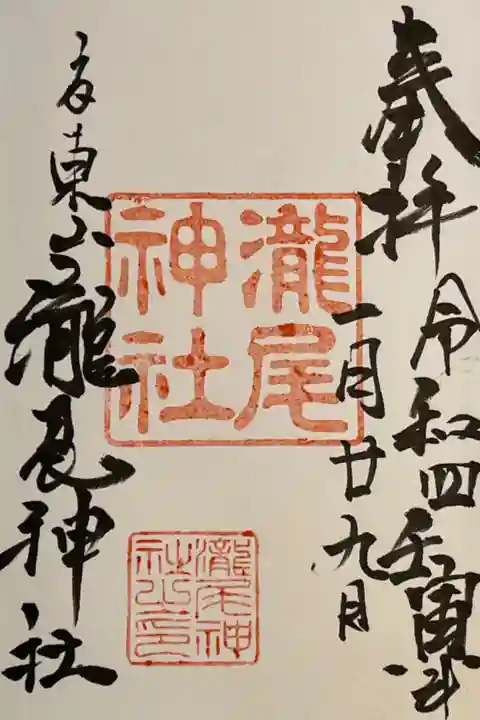 奉拝
令和四壬寅年
一月廿九日
瀧尾
神社
瀧尾神
社之印
京東山瀧尾神社